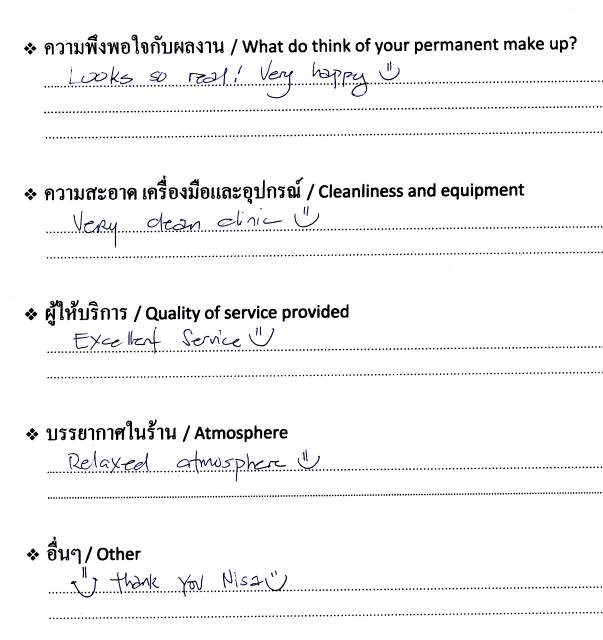 ❖ ความพึงพอใจกับผลงาน / What do think of your permanent make up?
Looks so real! Very happy
❖ ความสะอาด เครื่องมือและอุปกรณ์ / Cleanliness and equipment
Very clean clinic
❖ ผู้ให้บริการ / Quality of service provided
Excellent Service
❖ บรรยากาศในร้าน / Atmosphere
Relaxed atmosphere
❖ อื่นๆ / Other
thank you Nisa